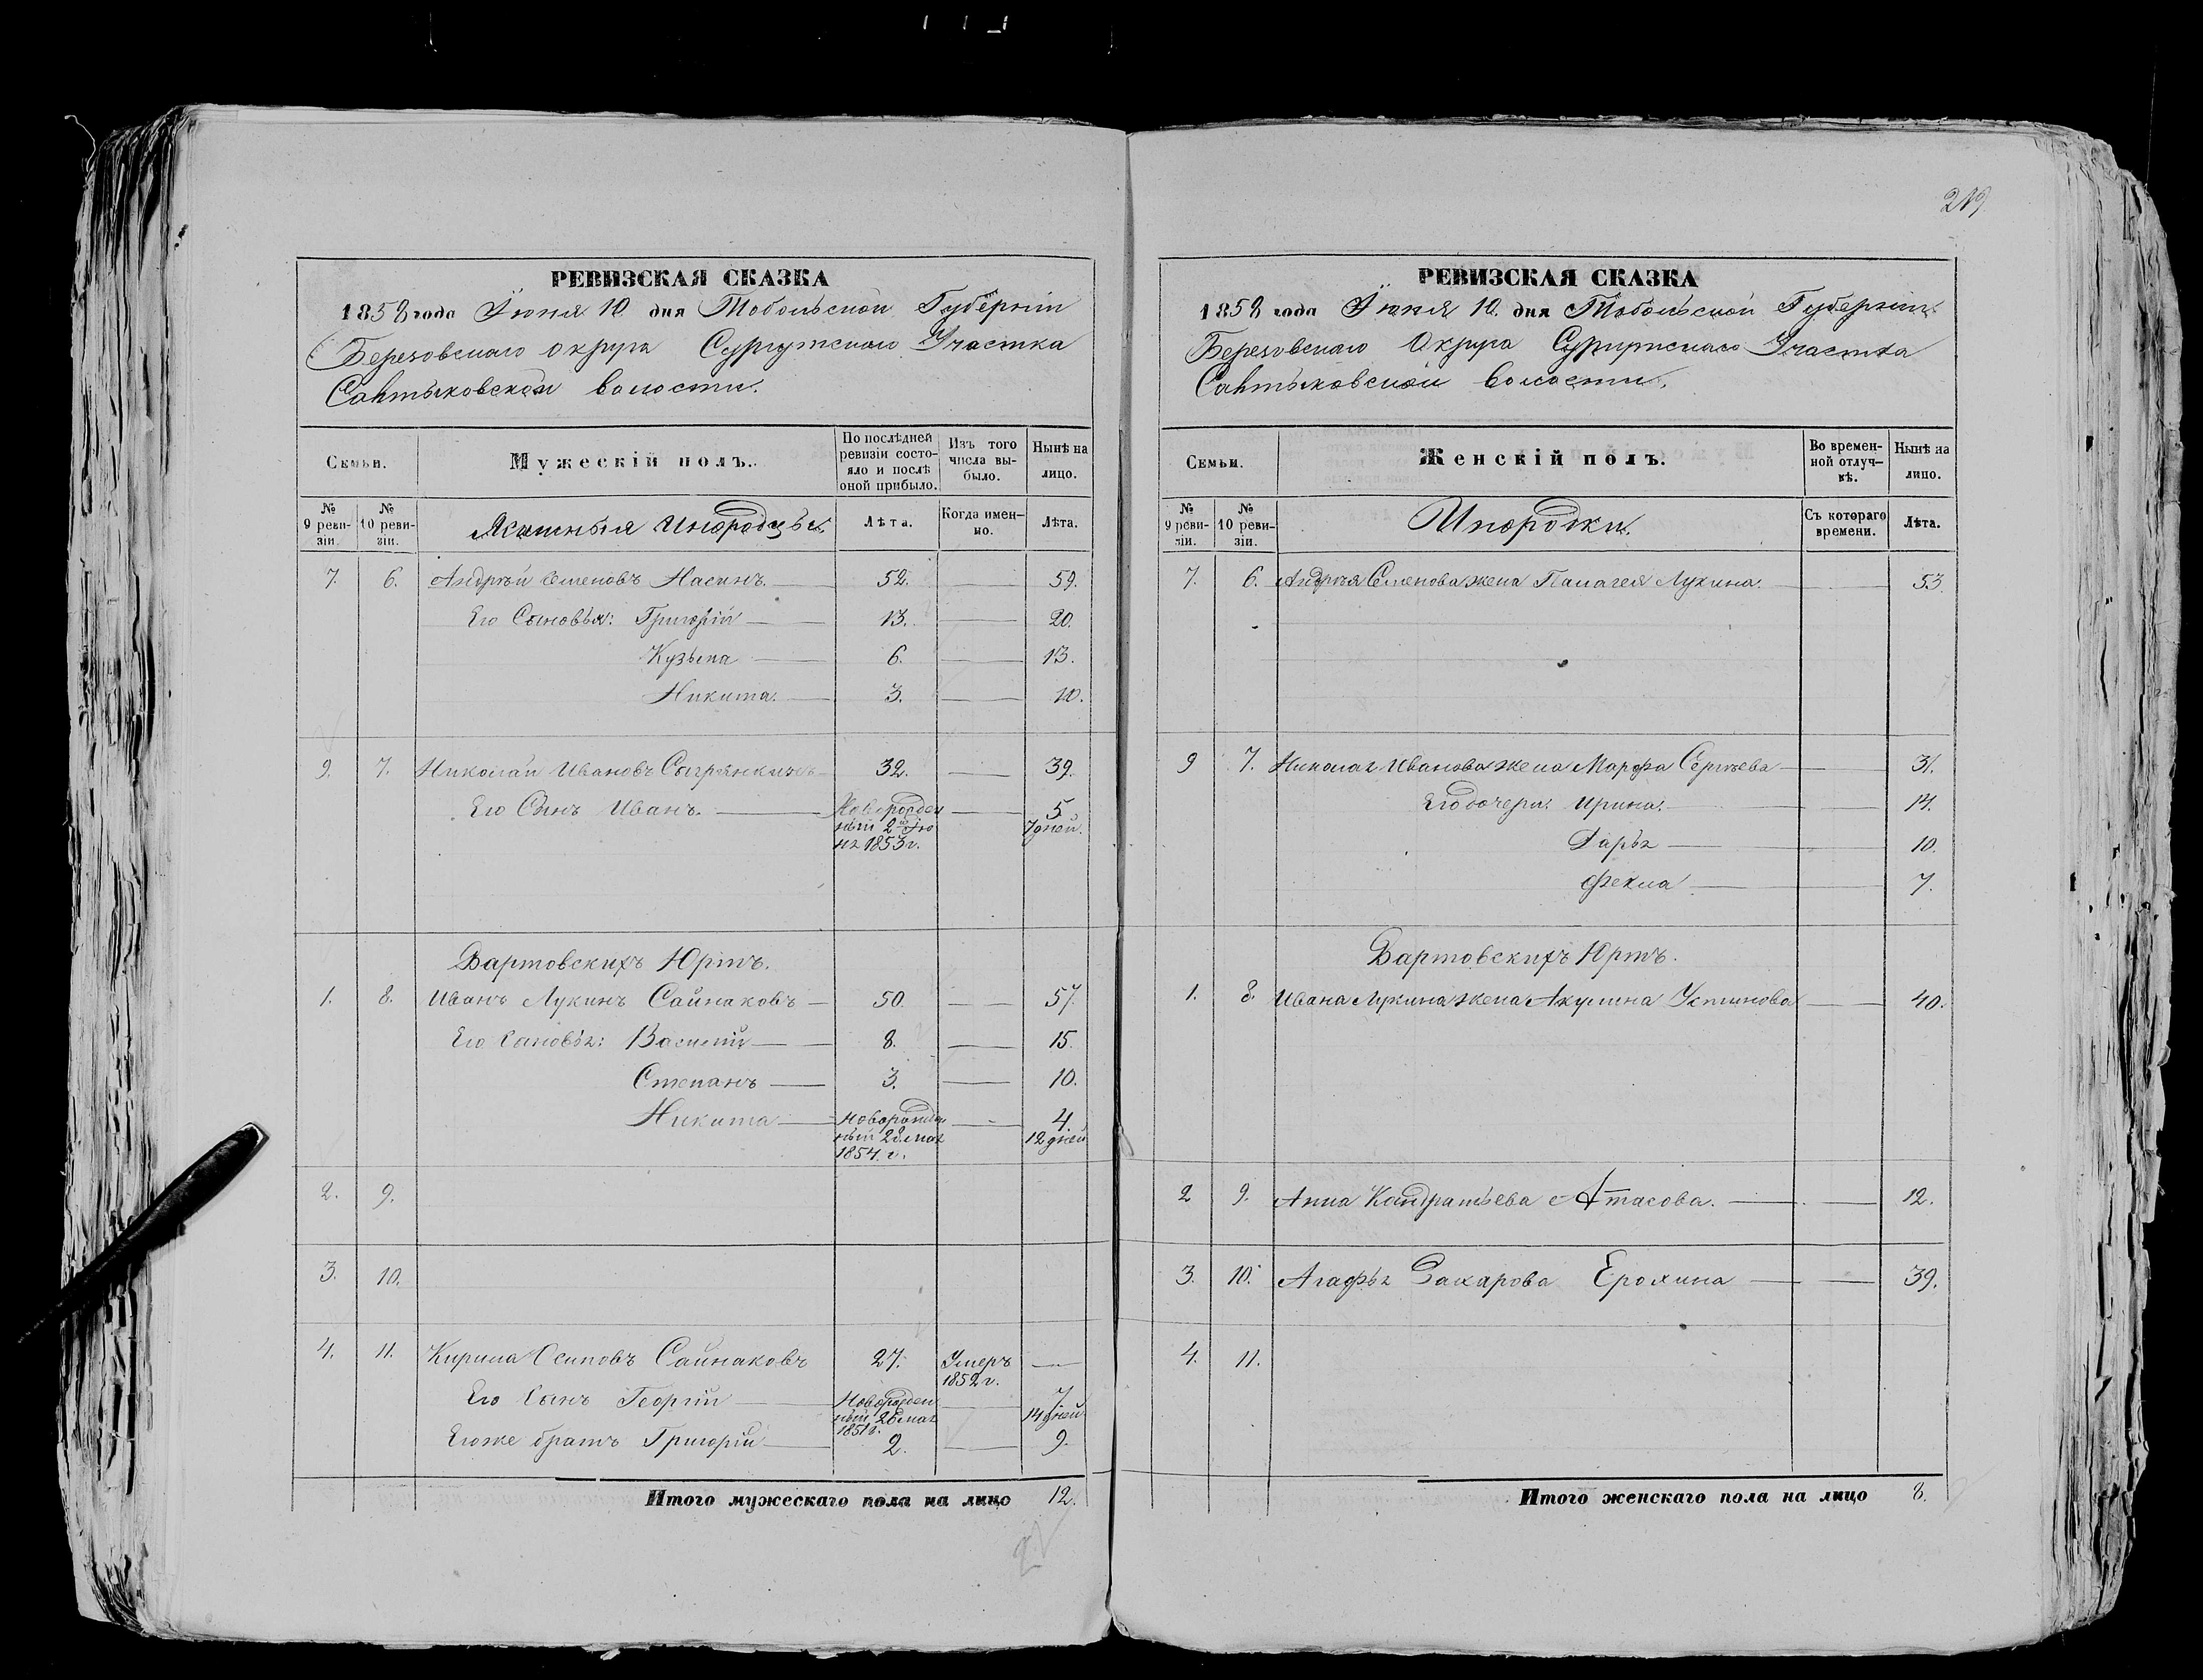 РЕВИЗСКАЯ СКАЗКА
1858 года Іюня 10 дня Тобольской Губерніи
Березовскаго округа Сургутскаго Участка
Салтыковской волости.
Семьи.
Мужескій полъ.
По послѣдней ревизіи состояло и послѣ оной прибыло.
Изъ того числа выбыло.
Нынѣ на лицо.
№ 9 ревизіи.
№ 10 ревизіи.
Ясашныя Инородцы.
Лѣта.
Когда именно.
Лѣта.
7. 6. Андрей Семеновъ Насинъ. 52. 59.
Его Сыновья: Григорій 13. 20.
Кузьма 6. 13.
Никита. 3. 10.
9. 7. Николай Ивановъ 32. 39.
Его Сынъ Иванъ. Новорожден 5.
ный 2й Ію 7 дней.
ня 1853 г.
Вартовскихъ Юртъ.
1. 8. Иванъ Лукинъ Сайнаковъ 50. 57.
Его Сыновья: Василій 8. 15.
Степанъ 3. 10.
Никита Новорожден 4.
ный 28 мая 12 дней
1854. г.
2. 9.
3. 10.
4. 11. Кирила Осиповъ Сайнаковъ 27. Умеръ
1852 г.
Его Сынъ Георгій Новорожден 7
ный 26 мая 14 дней
1851 г.
Егоже братъ Григорій 2. 9.
Итого мужескаго пола на лицо 12.
219
РЕВИЗСКАЯ СКАЗКА
1858 года Іюня 10. дня Тобольской Губерніи
Березовскаго Округа Сургутскаго Участка
Салтыковской волости.
Семьи.
Женскій полъ.
Во временной отлучкѣ.
Нынѣ на лицо.
№ 9 ревизіи.
№ 10 ревизіи.
Инородки.
Съ котораго времени.
Лѣта.
7. 6. Андрея Семенова жена Палагея Лукина. 53.
9 7. Николая Иванова жена Марфа Сергѣева 31.
Его дочери: Ирина. 14.
Дарья 10.
Фекла 7.
Вартовскихъ Юртъ.
1. 8. Ивана Лукина жена Акулина Устинова 40.
2 9. Анна Кандратьева Атасова. 12.
3. 10. Агафья Захарова Ерохина 39.
4. 11.
Итого женскаго пола на лицо 8.